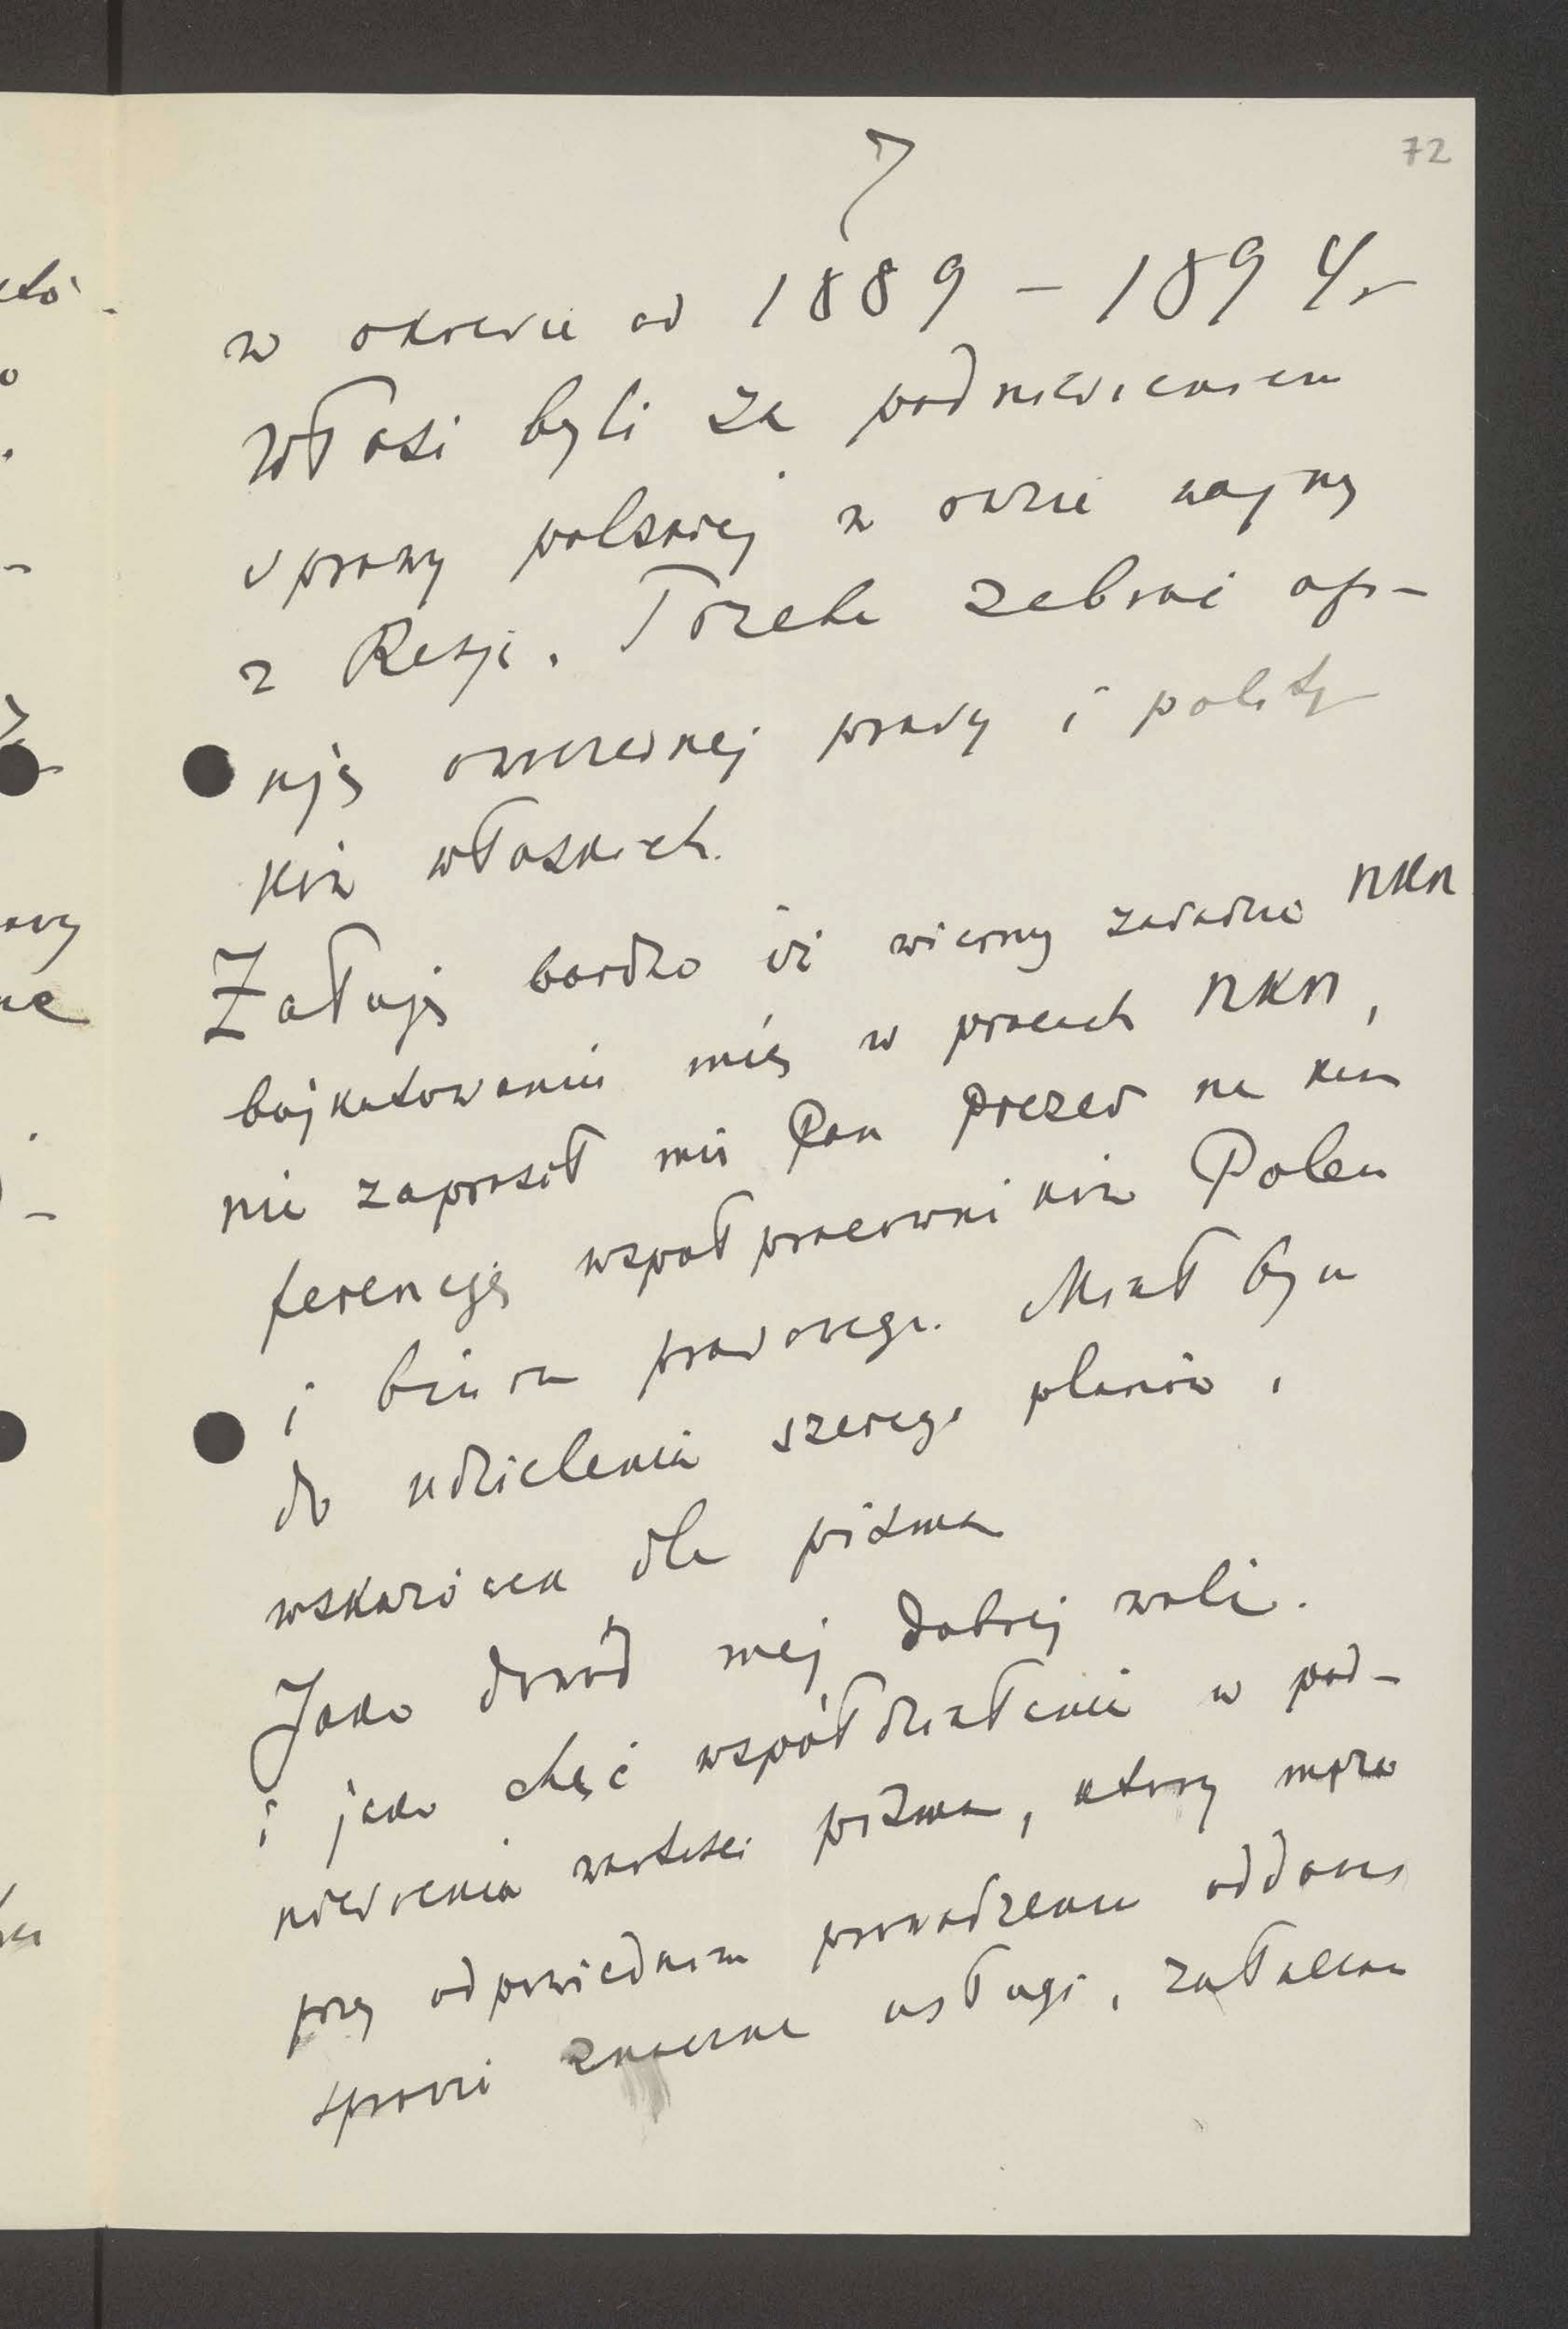 72
7
w okresie od 1889 – 1894 r
Włosi byli za podniesieniem
sprawy polskiej w razie wojny
z Rosji. Trzeba zebrać opi-
nję owczesnej prasy i polity
ków włoskich.
Żałuję bardzo iż wierny zasadzie NKN
bojkotowania mię w pracach NKN,
nie zaprosił mię Pan Prezes na kon
ferencję współpracowników Polen
i biura prasowego. Miałbym
do udzielenia szereg planów,
wskazówek dla pisma
Jako dowód mej dobrej woli.
i jako chęć współdziałania w pod-
niesienia wartości pisma, który
przy odpowiednim prowadzeniu
sprawie znaczne usługi, załączam